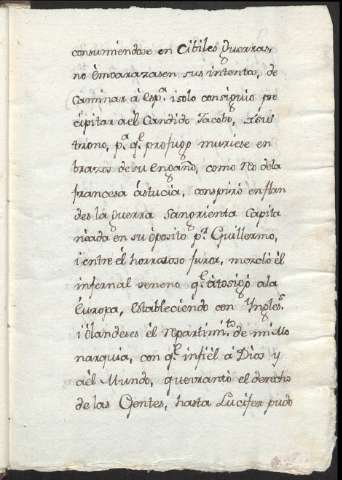 consumiendose en Cibiles Guerras,
no émbarazasen sus intentos, de
Caminar á Espª. i solo consiguio pre
cipitar àél Candido Jacobo, à su
trono, pª. qᵉ. profugo muriese en
brazos de su Engaño, como Reo dela
francesa ástucia, conspiró en flan
des la guerra Sangrienta Capita
neada en su óposito pʳ. Guillermo,
i entre él horroroso furor, mezcló él
infernal veneno qᵉ. átosigó ala
Europa, estableciendo con Yngles.ˢ
i ólandeses él repartim.ᵗᵒ de mi Mo
narquia, con qᵉ. infiél á Dios y
aél Mundo, quebrantó él derecho
de las Gentes, hasta Lucifer pudo